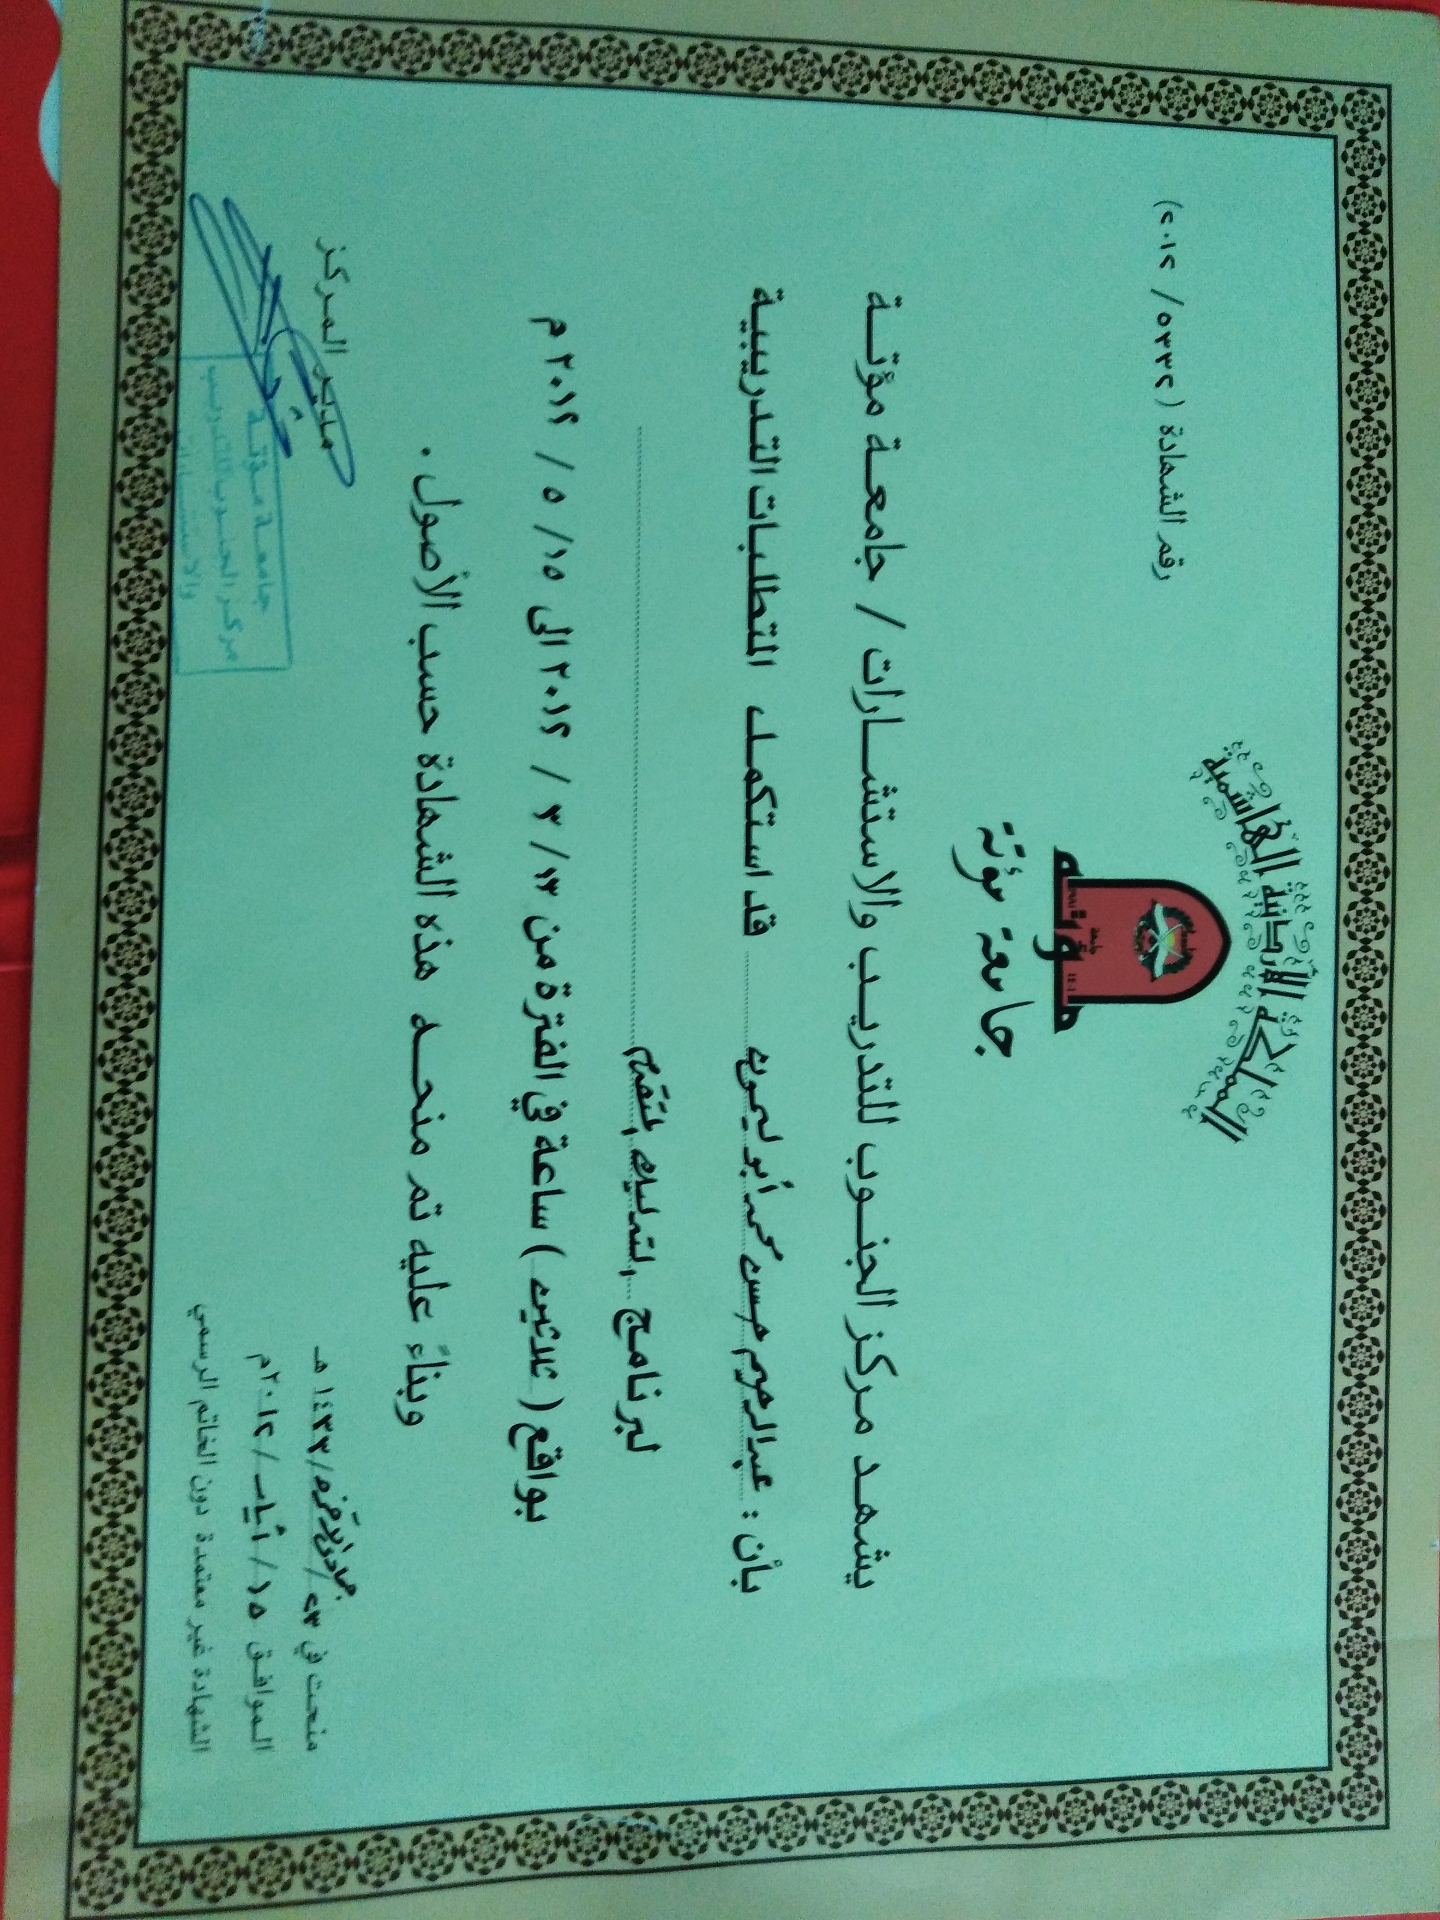 المملكة الأردنية الهاشمية
جامعة مؤتة
جامعة مؤتة
رقم الشهادة (٥٣٣٢ / ٢٠١٢)
يشهد مركز الجنوب للتدريب والاستشارات / جامعة مؤتة
بأن : عبدالرحيم حسن محمد أبو ليمون قد استكمل المتطلبات التدريبية
لبرنامج التدليك المتقدم
بواقع ( ثلاثين ) ساعة في الفترة من ١٣ / ٣ / ٢٠١٢ الى ١٥ / ٥ / ٢٠١٢ م
وبناءً عليه تم منحه هذه الشهادة حسب الأصول .
منحت في ٢٣ / جمادى الآخرة / ١٤٣٣ هـ
الموافق ١٥ / أيار / ٢٠١٢ م
الشهادة غير معتمدة دون الخاتم الرسمي
مدير المركز
جامعة مؤتة
مركز الجنوب للتدريب
والاستشارات